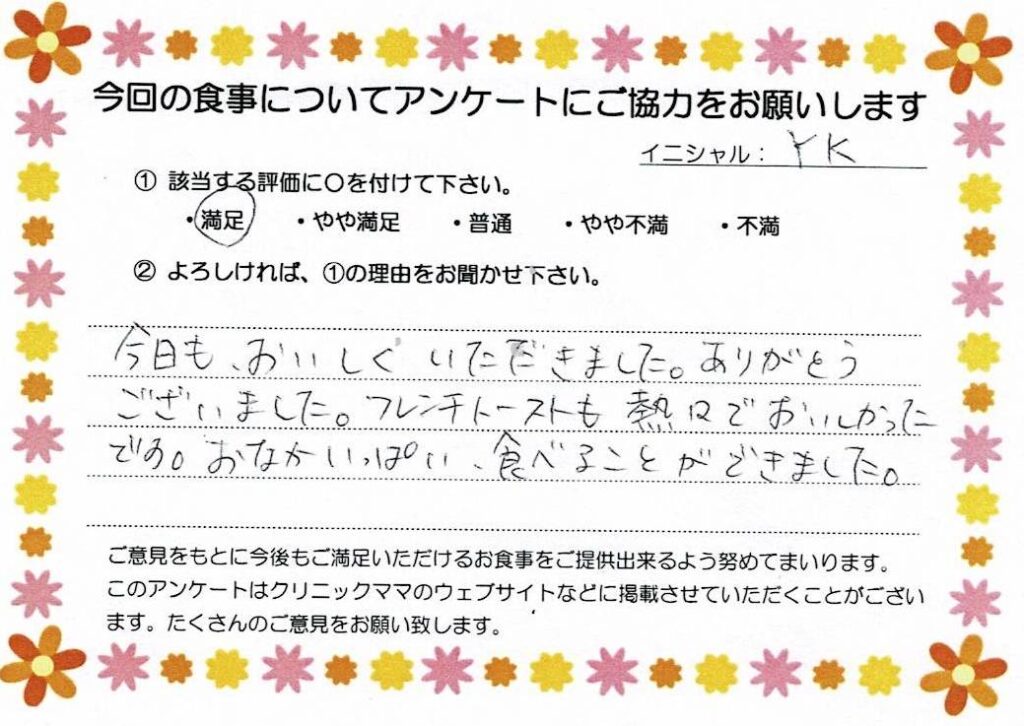 今回の食事についてアンケートにご協力をお願いします
イニシャル： YK
① 該当する評価に〇を付けて下さい。
・満足 ・やや満足 ・普通 ・やや不満 ・不満
② よろしければ、①の理由をお聞かせ下さい。
今日も、おいしくいただきました。ありがとう
ございました。フレンチトーストも熱々でおいしかった
です。おなかいっぱい、食べることができました。
ご意見をもとに今後もご満足いただけるお食事をご提供出来るよう努めてまいります。
このアンケートはクリニックママのウェブサイトなどに掲載させていただくことがござい
ます。たくさんのご意見をお願い致します。